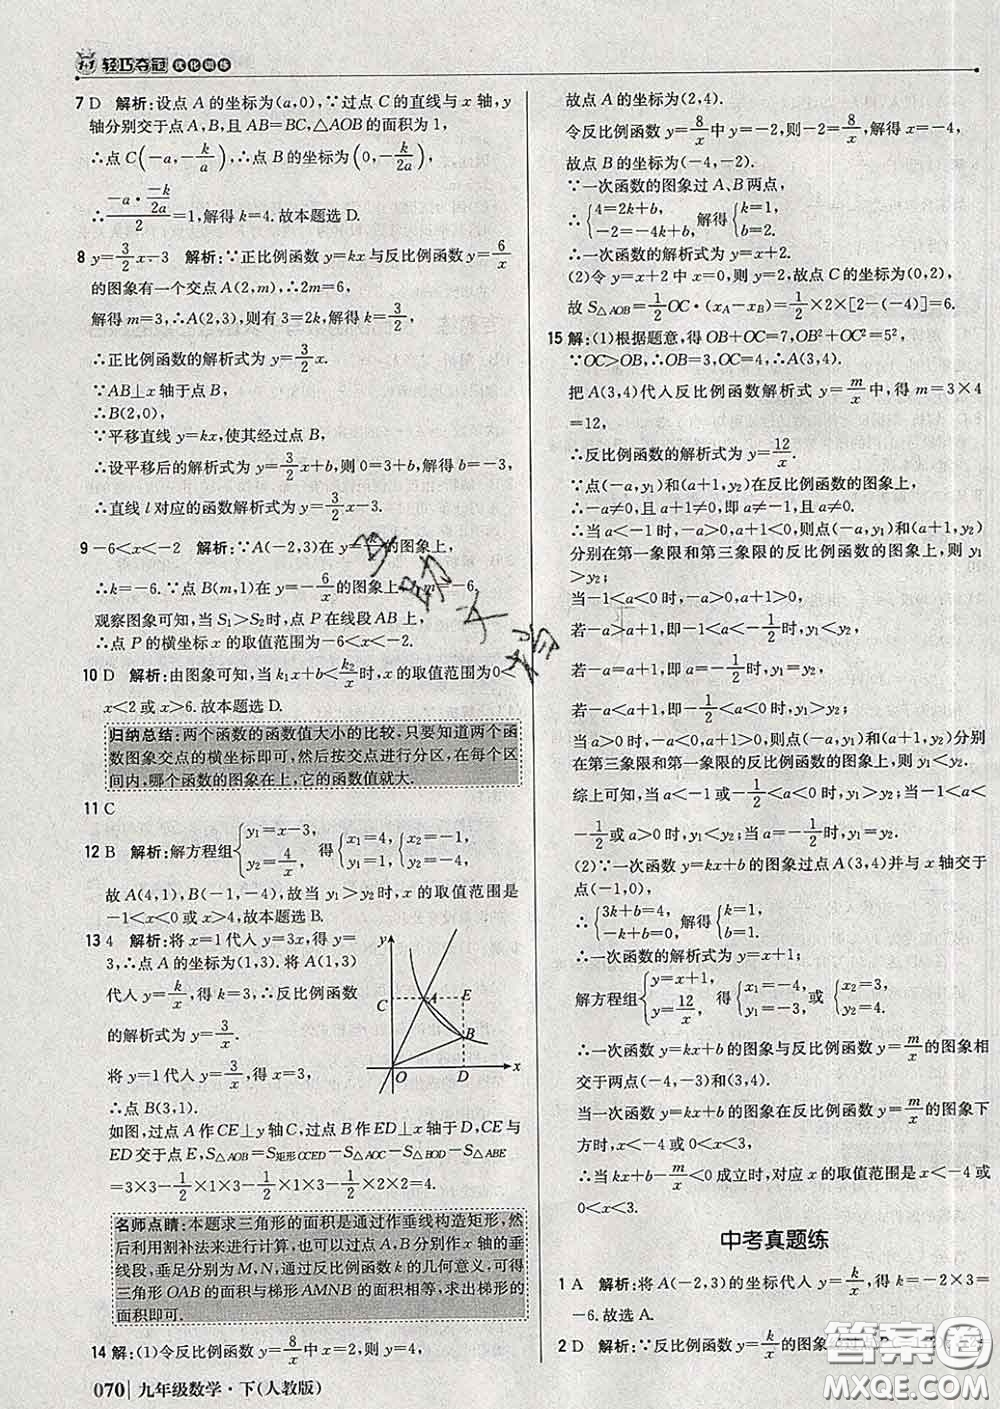 1+1 轻巧夺冠 优化训练
7 D 解析:设点 A 的坐标为(a,0),∵过点 C 的直线与 x 轴,y
轴分别交于点 A,B,且 AB=BC,△AOB 的面积为 1,
∴点 C(-a,-k/a),∴点 B 的坐标为(0,-k/2a),
∴(-a·(-k/2a))/2=1,解得 k=4.故本题选 D.
8 y=3/2x-3 解析:∵正比例函数 y=kx 与反比例函数 y=6/x
的图象有一个交点 A(2,m),∴2m=6,
解得 m=3,∴A(2,3),则有 3=2k,解得 k=3/2,
∴正比例函数的解析式为 y=3/2x.
∵AB⊥x 轴于点 B,
∴B(2,0),
∵平移直线 y=kx,使其经过点 B,
∴设平移后的解析式为 y=3/2x+b,则 0=3+b,解得 b=-3,
∴直线 l 对应的函数解析式为 y=3/2x-3.
9 -6<x<-2 解析:∵A(-2,3)在 y= 的图象上,
∴k=-6.∵点 B(m,1)在 y=-6/x的图象上,∴m=-6,
观察图象可知,当 S₁>S₂时,点 P 在线段 AB 上,
∴点 P 的横坐标 x 的取值范围为-6<x<-2.
10 D 解析:由图象可知,当 k₁x+b<k₂/x时,x 的取值范围为0<
x<2 或 x>6.故本题选 D.
归纳总结:两个函数的函数值大小的比较,只要知道两个函
数图象交点的横坐标即可,然后按交点进行分区,在每个区
间内,哪个函数的图象在上,它的函数值就大.
11 C
12 B 解析:解方程组{y₁=x-3, y₂=4/x, 得{x₁=4, y₁=1, {x₂=-1, y₂=-4,
故 A(4,1),B(-1,-4),故当 y₁>y₂时,x 的取值范围是
-1<x<0 或 x>4,故本题选 B.
13 4 解析:将 x=1 代入 y=3x,得 y=
3,∴点 A 的坐标为(1,3).将 A(1,3)
代入 y=k/x,得 k=3,∴反比例函数
的解析式为 y=3/x.
将 y=1 代入 y=3/x,得 x=3,
∴点 B(3,1).
y
C A E
B
O D x
如图,过点 A 作 CE⊥y 轴 C,过点 B 作 ED⊥x 轴于 D,CE 与
ED 交于点 E,S△AOB=S矩形OCED-S△AOC-S△BOD-S△ABE
=3×3-1/2×3×1-1/2×3×1-1/2×2×2=4.
名师点睛:本题求三角形的面积是通过作垂线构造矩形,然
后利用割补法来进行计算,也可以过点 A,B 分别作 x 轴的垂
线段,垂足分别为 M,N,通过反比例函数 k 的几何意义,可得
三角形 OAB 的面积与梯形 AMNB 的面积相等,求出梯形的
面积即可.
14 解:(1)令反比例函数 y=8/x中 x=2,则 y=4,
070 九年级数学·下(人教版)
故点 A 的坐标为(2,4).
令反比例函数 y=8/x中 y=-2,则-2=8/x,解得 x=-4,
故点 B 的坐标为(-4,-2).
∵一次函数的图象过 A,B 两点,
∴{4=2k+b, -2=-4k+b, 解得{k=1, b=2,
∴一次函数的解析式为 y=x+2.
(2)令 y=x+2 中 x=0,则 y=2,故点 C 的坐标为(0,2),
故 S△AOB=1/2OC·(xA-xB)=1/2×2×[2-(-4)]=6.
15 解:(1)根据题意,得 OB+OC=7,OB²+OC²=5²,
∵OC>OB,∴OB=3,OC=4,∴A(3,4).
把 A(3,4)代入反比例函数解析式 y=m/x中,得 m=3×4
=12,
∴反比例函数的解析式为 y=12/x.
∵点(-a,y₁)和(a+1,y₂)在反比例函数的图象上,
∴-a≠0,且 a+1≠0,即 a≠-1,且 a≠0,
∴当 a<-1 时,-a>0,a+1<0,则点(-a,y₁)和(a+1,y₂)
分别在第一象限和第三象限的反比例函数的图象上,则 y₁>
y₂;
当-1<a<0 时,-a>0,a+1>0,
若-a>a+1,即-1<a<-1/2时,y₁<y₂,
若-a=a+1,即 a=-1/2时,y₁=y₂,
若-a<a+1,即-1/2<a<0 时,y₁>y₂;
当 a>0 时,-a<0,a+1>0,则点(-a,y₁)和(a+1,y₂)分别
在第三象限和第一象限的反比例函数的图象上,则 y₁<y₂.
综上可知,当 a<-1 或-1/2<a<0 时,y₁>y₂;当-1<a<
-1/2或 a>0 时,y₁<y₂;当 a=-1/2时,y₁=y₂.
(2)∵一次函数 y=kx+b 的图象过点 A(3,4)并与 x 轴交于
点(-1,0),
∴{3k+b=4, -k+b=0, 解得{k=1, b=1.
∴一次函数的解析式为 y=x+1;
解方程组{y=x+1, y=12/x, 得{x₁=-4, y₁=-3, 或{x₂=3, y₂=4.
∴一次函数 y=kx+b 的图象与反比例函数 y=m/x的图象相
交于两点(-4,-3)和(3,4).
当一次函数 y=kx+b 的图象在反比例函数 y=m/x的图象下
方时,x<-4 或 0<x<3,
∴当 kx+b-m/x<0 成立时,对应 x 的取值范围是 x<-4 或
0<x<3.
中考真题练
1 A 解析:将 A(-2,3)的坐标代入 y=k/x,得 k=-2×3=
-6.故选 A.
2 D 解析:∵反比例函数 y=k/x的图象
答案圈
MXQE.COM